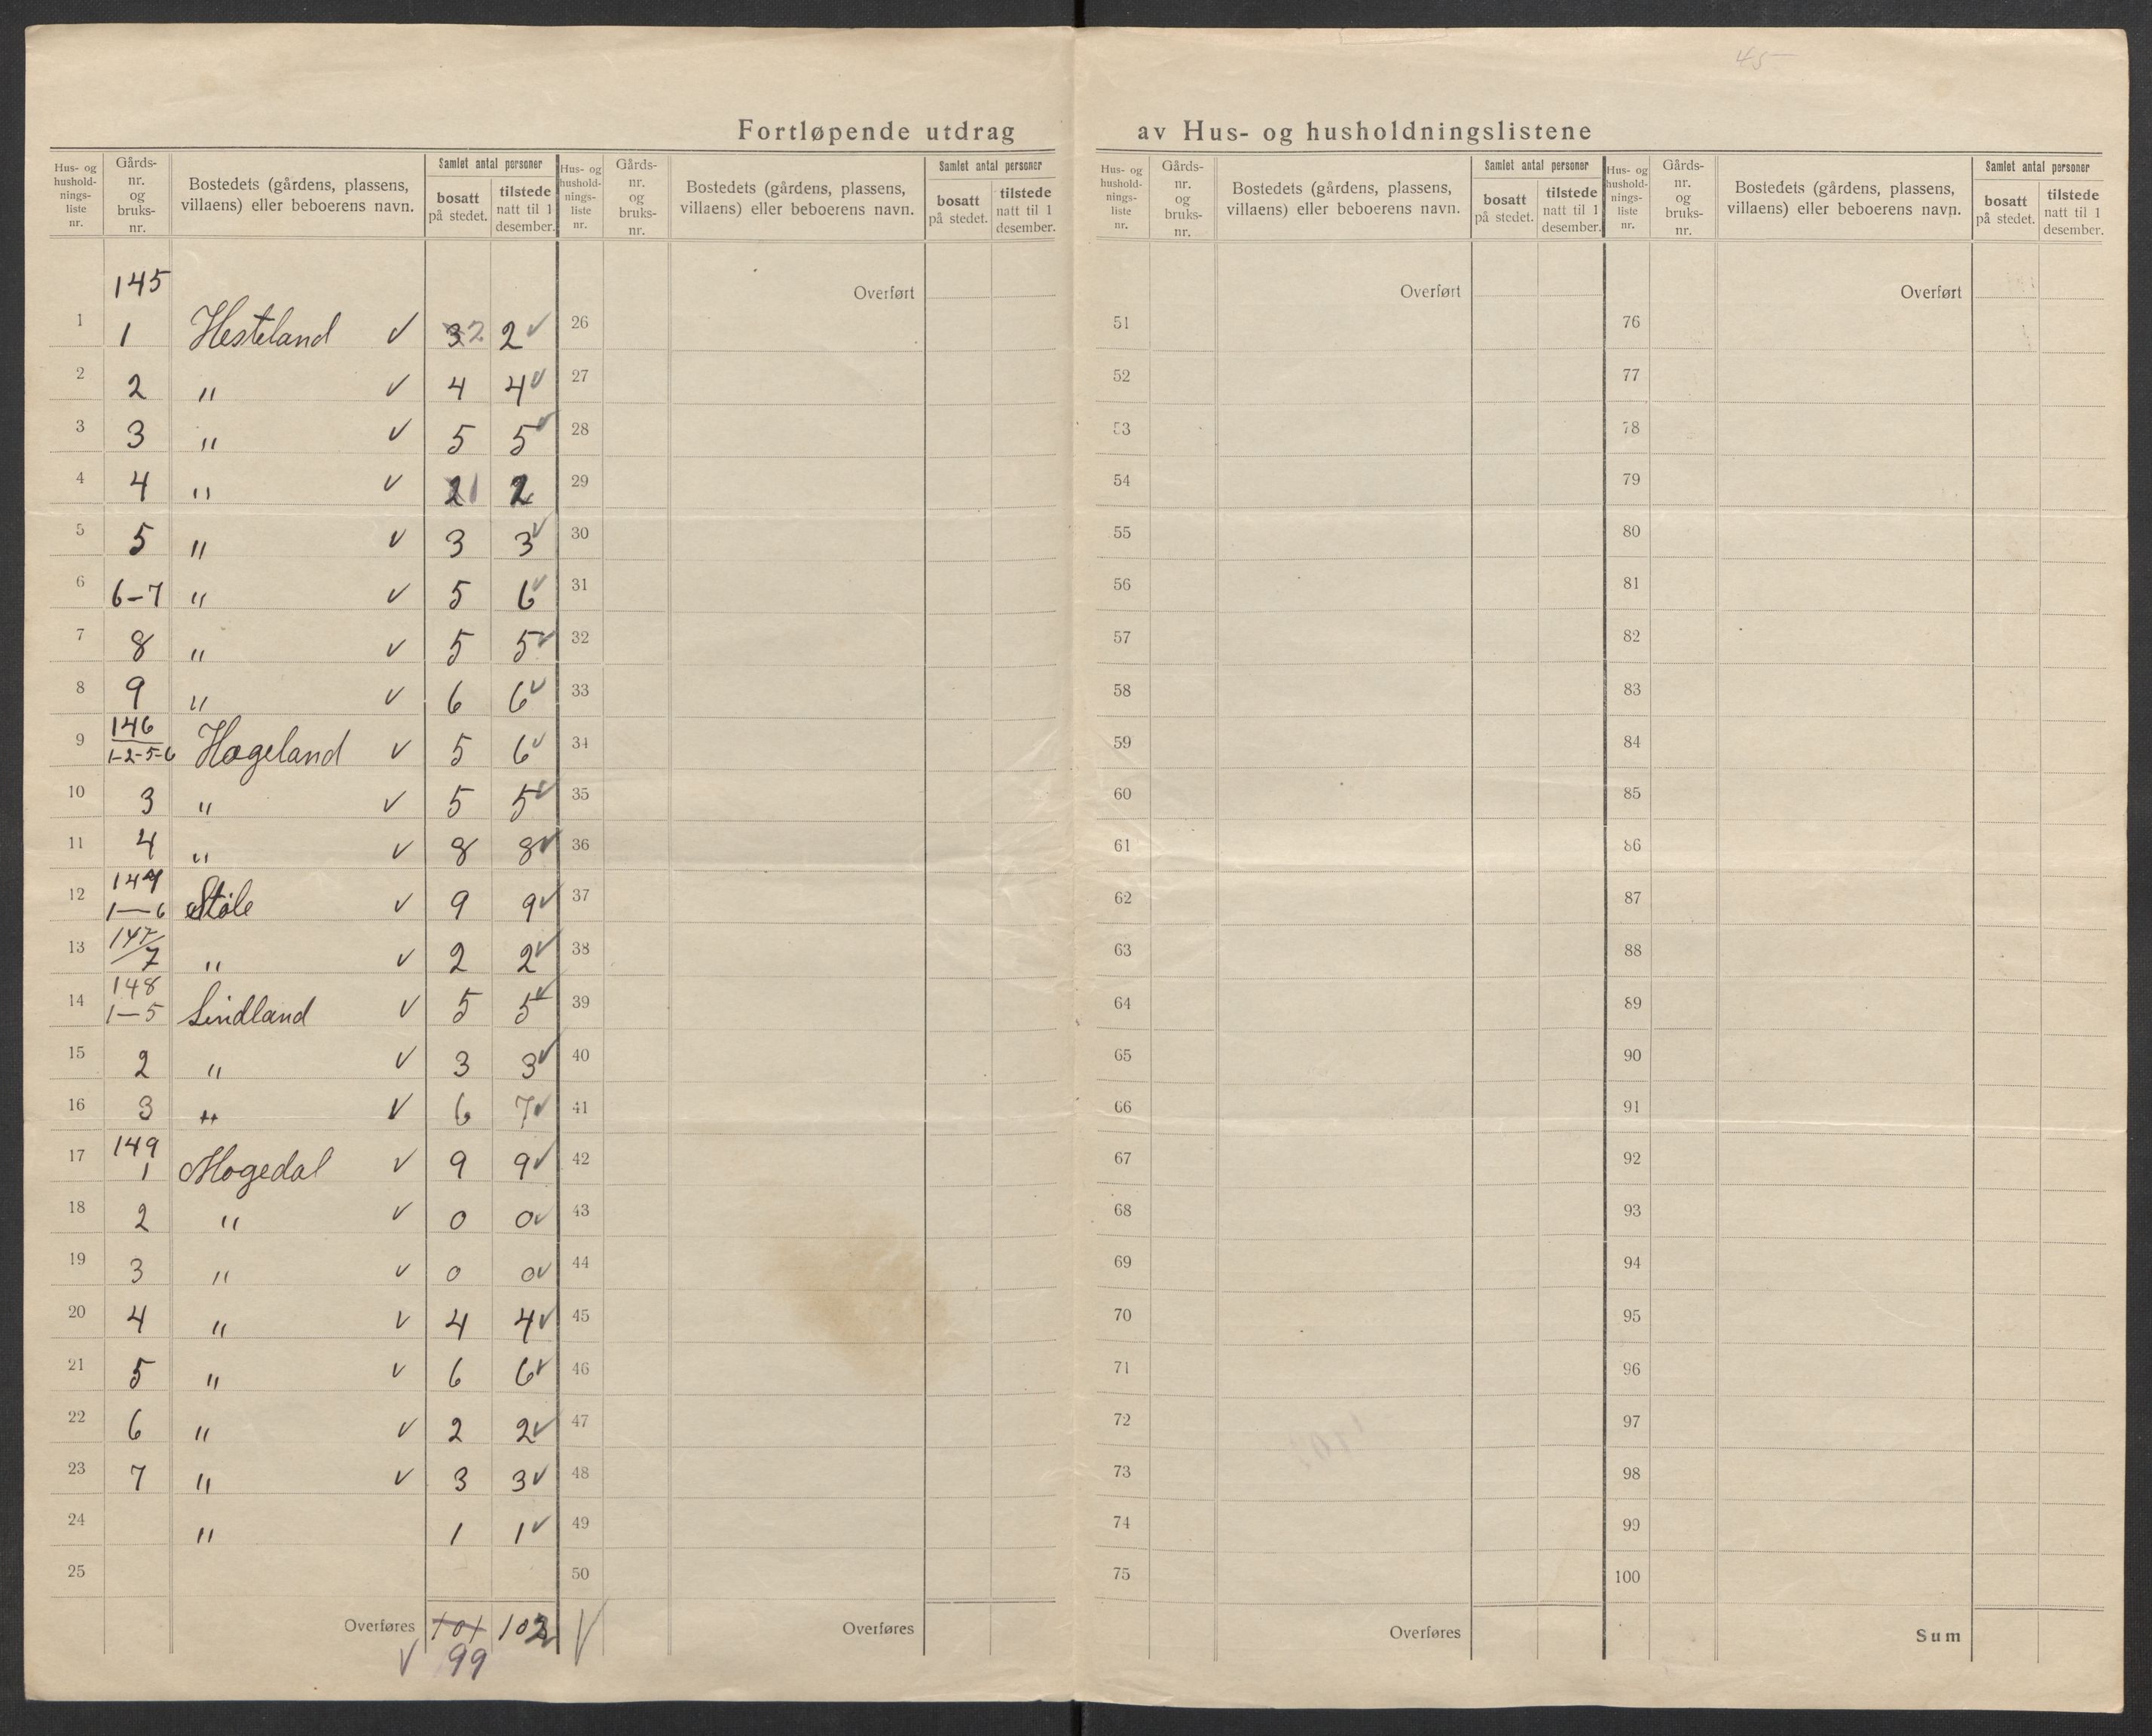 45
Fortløpende utdrag av Hus- og husholdningslistene
Hus- og husholdnings-liste nr. Gårds-nr. og bruks-nr. Bostedets (gårdens, plassens, villaens) eller beboerens navn. Samlet antal personer bosatt på stedet. tilstede natt til 1 desember.
Hus- og husholdnings-liste nr. Gårds-nr. og bruks-nr. Bostedets (gårdens, plassens, villaens) eller beboerens navn. Samlet antal personer bosatt på stedet. tilstede natt til 1 desember.
Hus- og husholdnings-liste nr. Gårds-nr. og bruks-nr. Bostedets (gårdens, plassens, villaens) eller beboerens navn. Samlet antal personer bosatt på stedet. tilstede natt til 1 desember.
Hus- og husholdnings-liste nr. Gårds-nr. og bruks-nr. Bostedets (gårdens, plassens, villaens) eller beboerens navn. Samlet antal personer bosatt på stedet. tilstede natt til 1 desember.
145 Overført Overført Overført
1 1 Hesteland ✓ 3 2 2 ✓ 26 51 76
2 2 " ✓ 4 4 ✓ 27 52 77
3 3 " ✓ 5 5 ✓ 28 53 78
4 4 " ✓ 2 1 2 29 54 79
5 5 " ✓ 3 3 ✓ 30 55 80
6 6-7 " ✓ 5 6 ✓ 31 56 81
7 8 " ✓ 5 5 ✓ 32 57 82
8 9 " ✓ 6 6 ✓ 33 58 83
9 146 1-2-5-6 Hageland ✓ 5 6 ✓ 34 59 84
10 3 " ✓ 5 5 ✓ 35 60 85
11 4 " ✓ 8 8 ✓ 36 61 86
12 147 1—6 Støle ✓ 9 9 ✓ 37 62 87
13 147/7 " ✓ 2 2 ✓ 38 63 88
14 148 1—5 Lindland ✓ 5 5 ✓ 39 64 89
15 2 " ✓ 3 3 ✓ 40 65 90
16 3 " ✓ 6 7 ✓ 41 66 91
17 149 1 Mogedal ✓ 9 9 ✓ 42 67 92
18 2 " ✓ 0 0 ✓ 43 68 93
19 3 " ✓ 0 0 ✓ 44 69 94
20 4 " ✓ 4 4 ✓ 45 70 95
21 5 " ✓ 6 6 ✓ 46 71 96
22 6 " ✓ 2 2 ✓ 47 72 97
23 7 " ✓ 3 3 ✓ 48 73 98
24 " 1 1 ✓ 49 74 99
25 50 75 100
Overføres 101 102 ✓ Overføres Overføres Sum
✓ 99